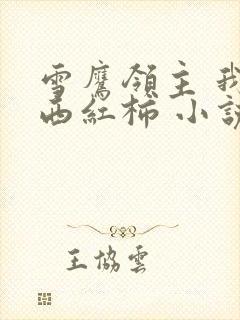 雪鷹領主 我
西紅柿 小說
王協雲